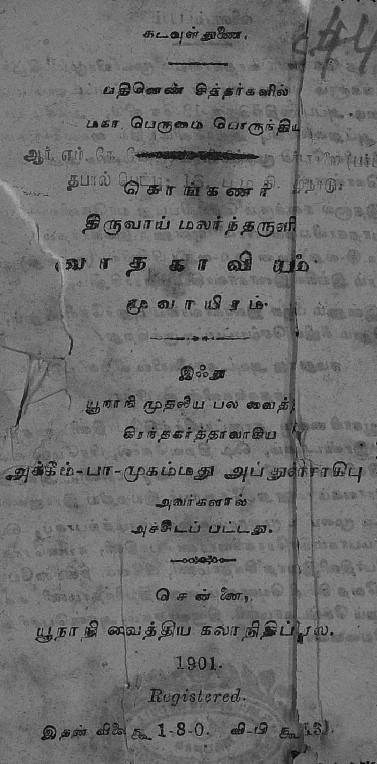 கடவுள் துணை.
பதினெண் சித்தர்களில்
மகா பெருமை பொருந்திய
ஆர். எம். கே.
தபால்
கொங்கணர்
திருவாய் மலர்ந்தருளி
வாத காவியம்
மூவாயிரம்.
இஃது
யூநாநி முதலிய பல வைத்
கிரந்தகர்த்தாவாகிய
அக்கீம்-பா-முகம்மது அப்துல்லாசாகிபு
அவர்களால்
அச்சிடப் பட்டது.
சென்னை,
யூநாநி வைத்திய கலாநிதிப்
1901.
Registered.
இதன் விலை ரூ 1-8-0. வி-பி ரூ